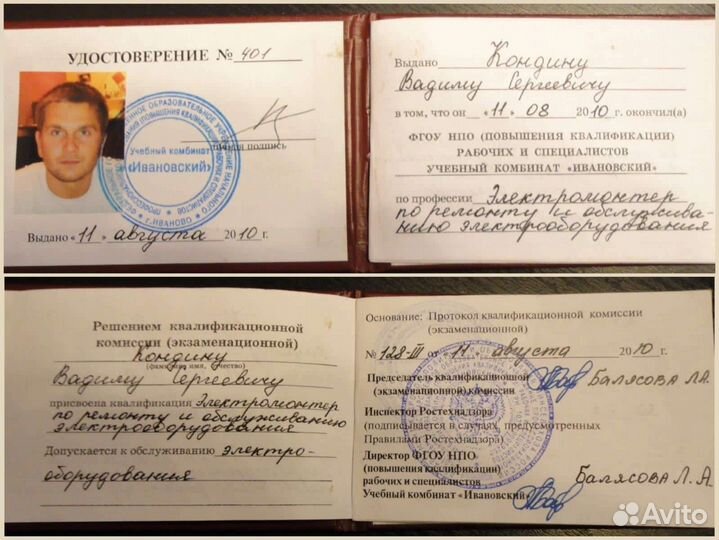 УДОСТОВЕРЕНИЕ № 401
Учебный комбинат
«Ивановский»
г. ИВАНОВО
подпись
Выдано «11» августа 2010 г.
Выдано Кондину
Вадиму Сергеевичу
в том, что он «11» 08 2010 г. окончил(а)
ФГОУ НПО (ПОВЫШЕНИЯ КВАЛИФИКАЦИИ)
РАБОЧИХ И СПЕЦИАЛИСТОВ
УЧЕБНЫЙ КОМБИНАТ «ИВАНОВСКИЙ»
по профессии Электромонтер
по ремонту и обслужива-
нию электрооборудования
Решением квалификационной
комиссии (экзаменационной)
Кондину
(фамилия, имя, отчество)
Вадиму Сергеевичу
присвоена квалификация Электромонтер
по ремонту и обслуживанию
электрооборудования
Допускается к обслуживанию электро-
оборудования
Основание: Протокол квалификационной комиссии
(экзаменационной)
№ 128-III от «11» августа 2010 г.
Председатель квалификационной
(экзаменационной) комиссии БАЛЯСОВА Л.А.
Инспектор Ростехнадзора
(подписывается в случаях, предусмотренных
Правилами Ростехнадзора)
Директор ФГОУ НПО
(повышения квалификации)
рабочих и специалистов БАЛЯСОВА Л.А.
Учебный комбинат «Ивановский»
Avito